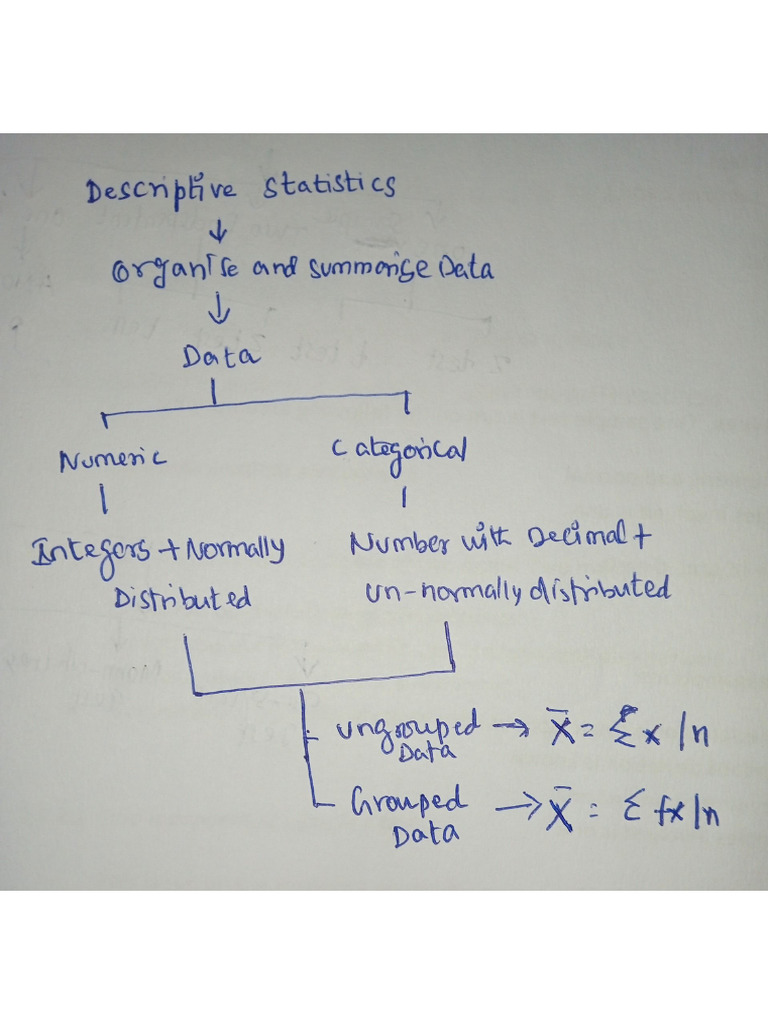 Descriptive statistics
↓
Organise and summarise Data
↓
Data
Numeric
Categorical
Integers + Normally
Distributed
Number with Decimal +
un-normally distributed
ungrouped → X̄ = Σx/n
Data
Grouped → X̄ = Σfx/n
Data